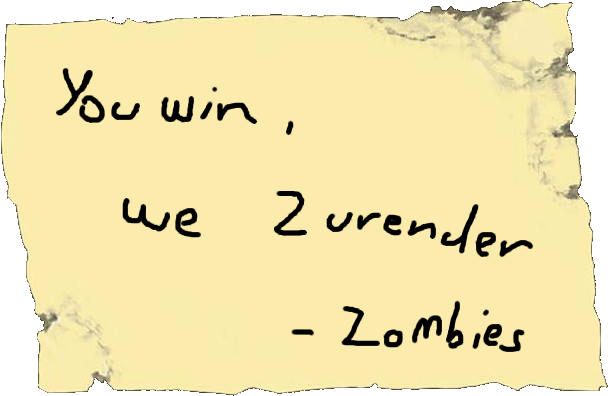 You win,
we Zurender
- Zombies